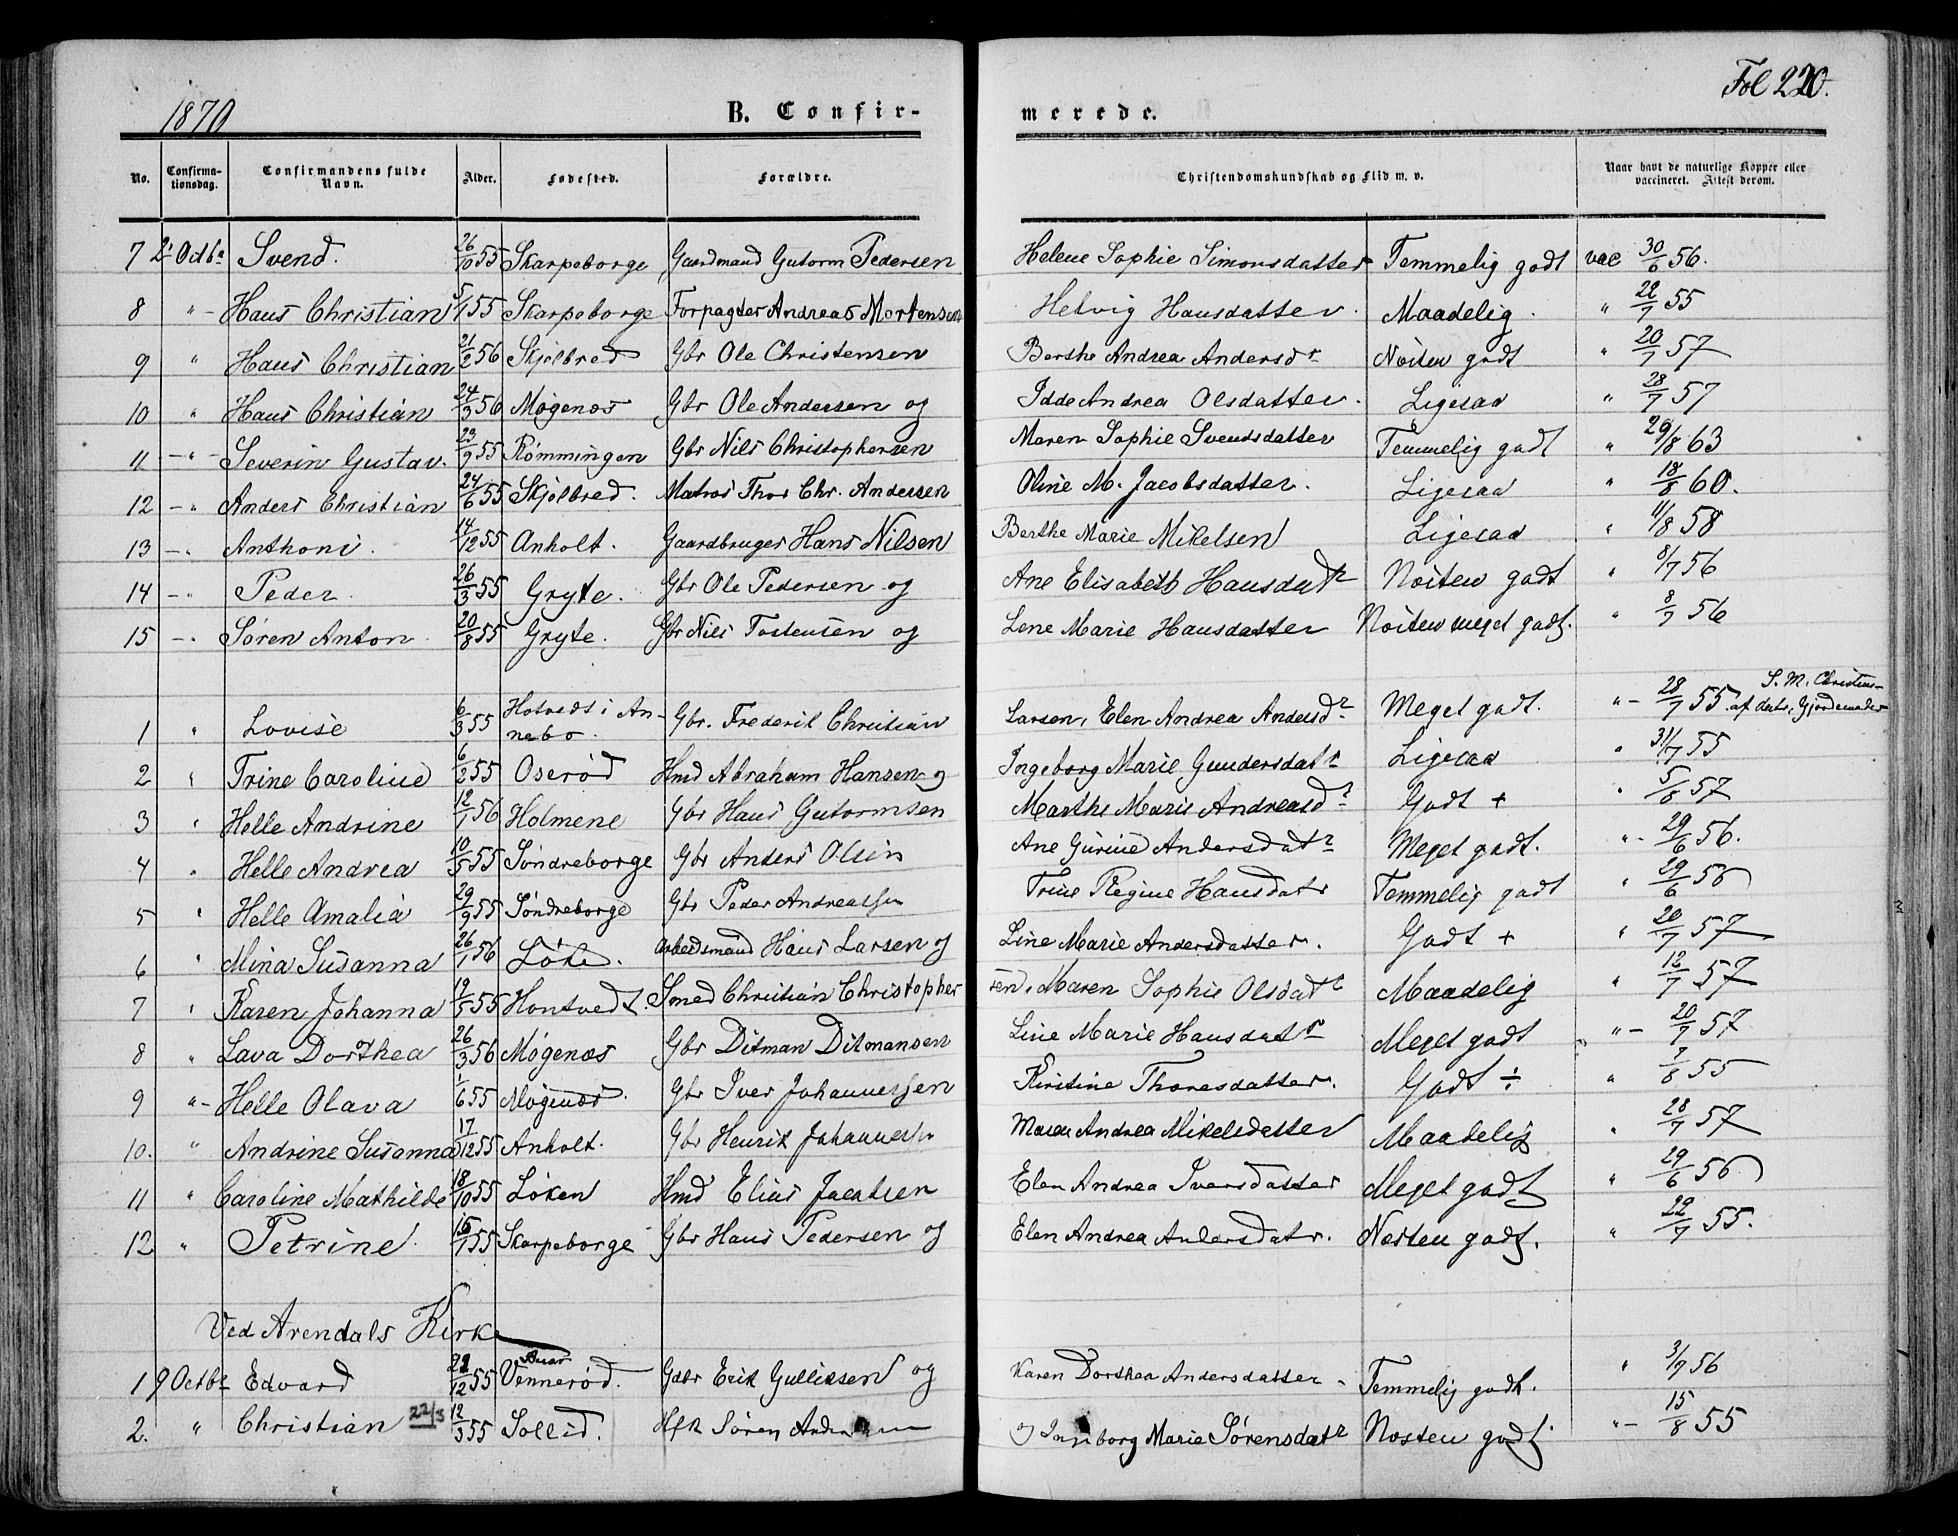 1870 B. Confir- merede. Fol 220.
No. Confirma-tionsdag. Confirmandens fulde Navn. Alder. Fødested. Forældre. Christendomskundskab og Flid m. v. Naar havt de naturlige Kopper eller vaccineret. Attest derom.
7 2 Octbr Svend. 26/10 55 Skarpeborge Gaardmand Gutorm Pedersen Helene Sophie Simonsdatter Temmelig godt vac 30/6 56.
8 " Hans Christian 5/1 55 Skarpeborge Forpagter Andreas Mortensen Helvig Hansdatter. Maadelig. " 22/7 55
9 " Hans Christian 21/2 56 Skjelbred Gbr Ole Christensen Berthe Andrea Andersdr Næsten godt " 20/7 57
10 " Hans Christian 24/3 56 Møgenæs Gbr Ole Andersen og Idde Andrea Olsdatter. Ligesaa " 28/7 57
11 " Severin Gustav. 23/9 55 Rømmingen Gbr Nils Christophersen Maren Sophie Svendsdatter Temmelig godt " 29/8 63
12 " Anders Christian 24/6 55 Skjelbred. Matros Thor Chr. Andersen Oline M. Jacobsdatter. Ligesaa " 18/8 60.
13 " Anthoni. 14/12 55 Anholt. Gaardbruger Hans Nilsen Berthe Marie Mikelsen Ligesaa " 11/8 58
14 " Peder. 26/3 55 Gryte. Gbr Ole Pedersen og Ane Elisabeth Hansdatr Næsten godt " 8/7 56
15 " Søren Anton. 20/8 55 Gryte. Gbr Nils Tostensen og Lene Marie Hansdatter Næsten meget godt. " 8/7 56
1 Lovise 6/3 55 Hotvedt i An-nebo. Gbr. Frederik Christian Larsen, Elen Andrea Andersdr Meget godt. " 28/7 55 af S. M. Christens-datr, Gjordemoder
2 " Trine Caroline 6/2 55 Oserød Hmd Abraham Hansen og Ingeborg Marie Gundersdatr Ligesaa " 31/7 55
3 " Helle Andrine 12/1 56 Holmene Gbr Hans Gutormsen Marthe Marie Andreasdr Godt + " 5/8 57
4 " Helle Andrea 10/5 55 Søndreborge Gbr Anders Olsen Ane Gurine Andersdatr Meget godt. " 29/6 56.
5 " Helle Amalia 29/9 55 Søndreborge Gbr Peder Andreassen Trine Regine Hansdatr Temmelig godt " 29/6 56
6 " Mina Susanna 26/1 56 Løke. Arbeidsmand Hans Larsen og Line Marie Andersdatter. Godt + " 20/7 57
7 " Karen Johanna 19/5 55 Hontvedt. Smed Christian Christopher sen, Maren Sophie Olsdatr Maadelig " 12/7 57
8 " Lava Dorthea 26/3 56 Møgenæs Gbr Ditman Ditmansen Line Marie Hansdatr Meget godt " 20/7 57
9 " Helle Olava 1/6 55 Møgenæs. Gbr Iver Johannessen Kirstine Thoresdatter. Godt ÷ " 7/8 55
10. " Andrine Susanna 17/12 55 Anholt. Gbr Henrik Johannessen Maren Andrea Mikelsdatter Maadelig " 28/7 57
11 " Caroline Mathilde 18/10 55 Løken Hmd Elias Jacobsen Elen Andrea Iversdatter Meget godt " 29/6 56
12 " Petrine. 15/1 55 Skarpeborge Gbr Hans Pedersen og Elen Andrea Andersdatr. Næsten godt. " 22/7 55.
Ved Arendals Kirke
1 9 Octbr Edvard 22/12 55 Vennerød. Gdbr Erik Gulliksen og Karen Dorthea Andersdatter Temmelig godt. " 3/7 56
2. " Christian 22/3 12/3 55 Sollid. Hfk Søren Andersen og Inneborg Marie Sørensdatr Næsten godt. " 15/8 55